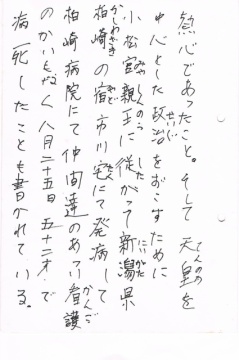 熱心であったこと。そして天皇を
中心とした政治をおこすために
小松宮親王に従がって新潟県
柏崎の宿市川宅にて発病して
柏崎病院にて仲間達のあつい看護
のかいもなく八月二十五日五十二才で
病死したことも書かれている。